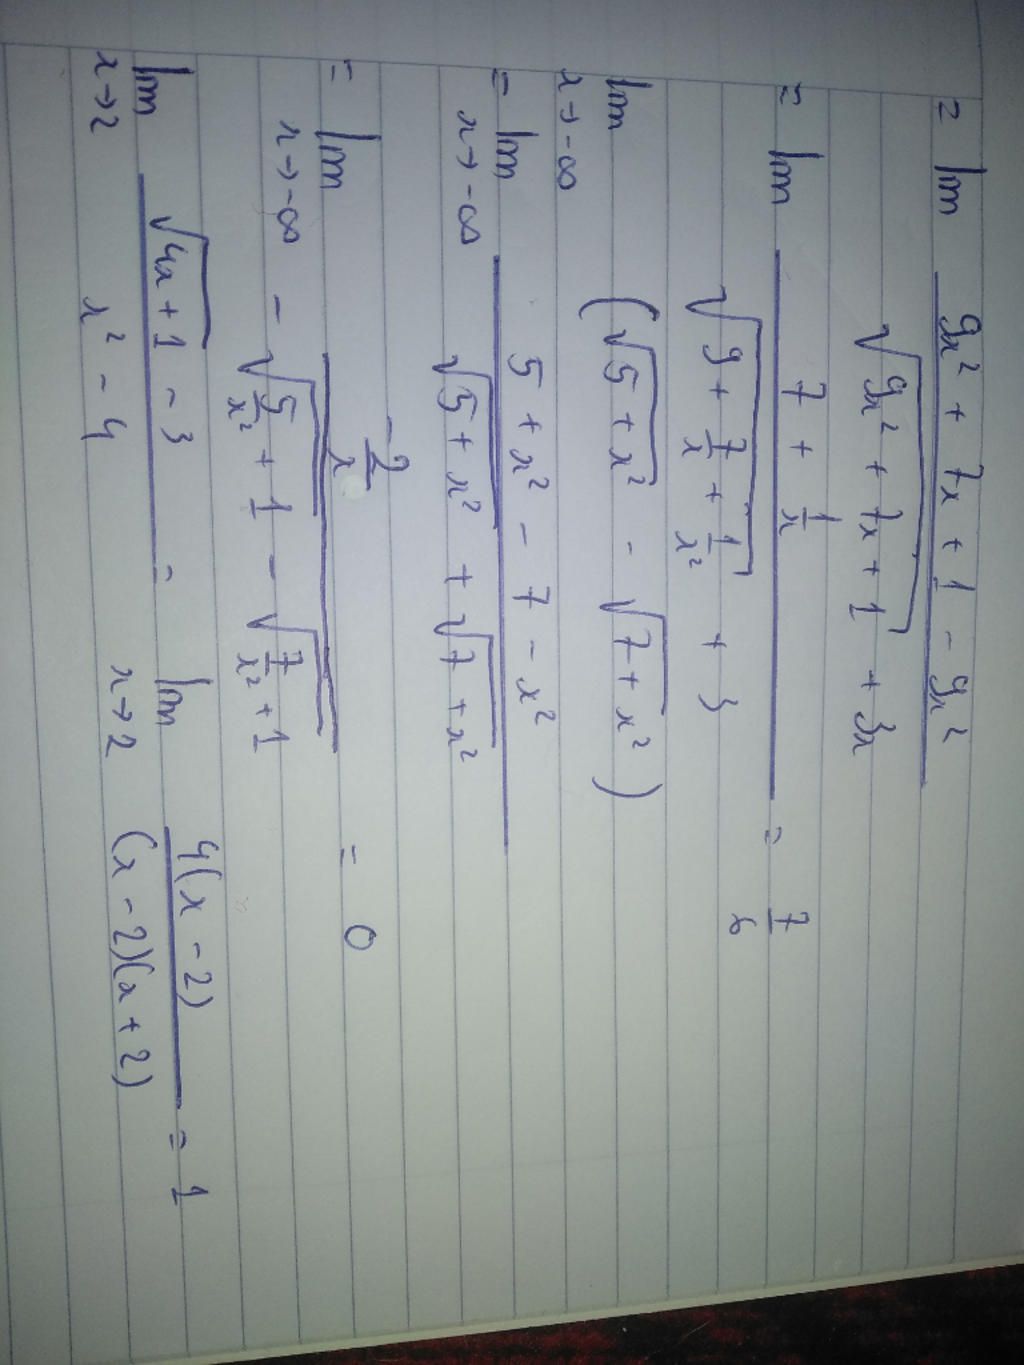 = lim 9x² + 7x + 1 - 9x² / √(9x² + 7x + 1) + 3x
= lim 7 + 1/x / √(9 + 7/x + 1/x²) + 3 = 7/6
lim x→-∞ (√(5 + x²) - √(7 + x²))
= lim x→-∞ 5 + x² - 7 - x² / √(5 + x²) + √(7 + x²)
= lim x→-∞ -2/x / -√(5/x² + 1) - √(7/x² + 1) = 0
lim x→2 √(4x + 1) - 3 / x² - 4 = lim x→2 4(x - 2) / (x - 2)(x + 2) = 1